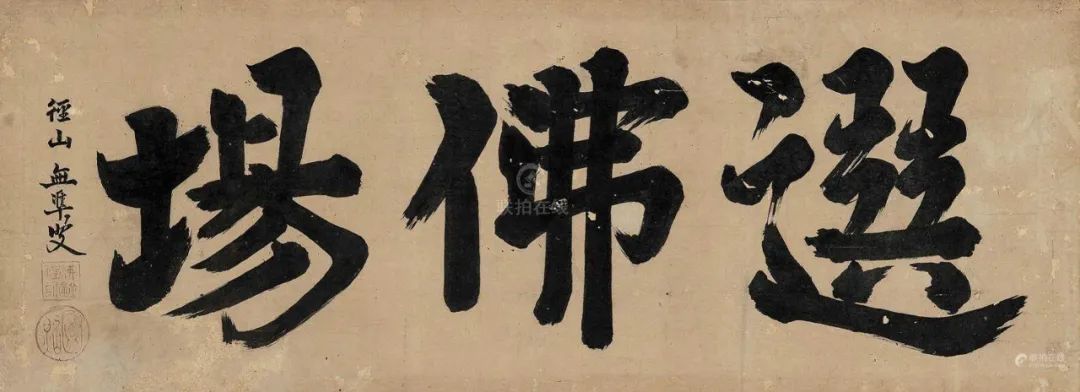 選佛場
徑山 無準叟
联拍在线
联拍在线